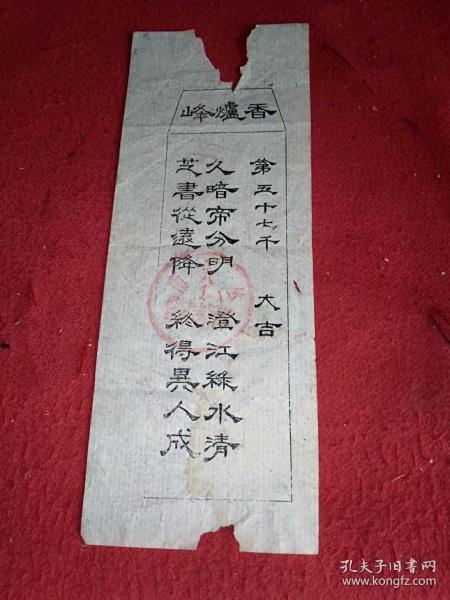 香爐峰
第五十七千 大吉
久暗帝分明 澄江綠水清
芝書從遠降 終得異人成
孔夫子旧书网
www.kongfz.com